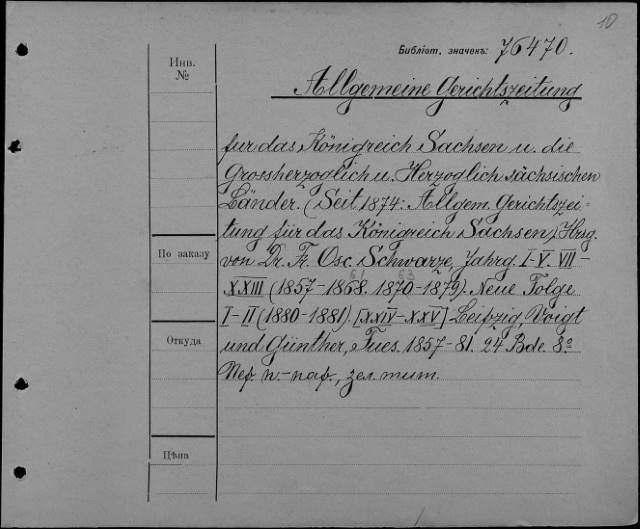 10
Библіот, значекъ: 76470.
Инв.
№
Allgemeine Gerichtszeitung
für das Königreich Sachsen u. die
Grossherzoglich u. Herzoglich sächsischen
Länder. (Seit 1874: Allgem. Gerichtszei=
tung für das Königreich Sachsen) Hrsg.
По заказу
von Dr. Fr. Osc. Schwarze, Jahrg. I-V. VII-
61 63
XXIII (1857-1868. 1870-1879). Neue Folge
I-II (1880-1881). [XXIV-XXV] Leipzig, Voigt
Откуда
und Günther, Fues. 1857-81. 24 Bde. 8º
зел. тит.
Цѣна